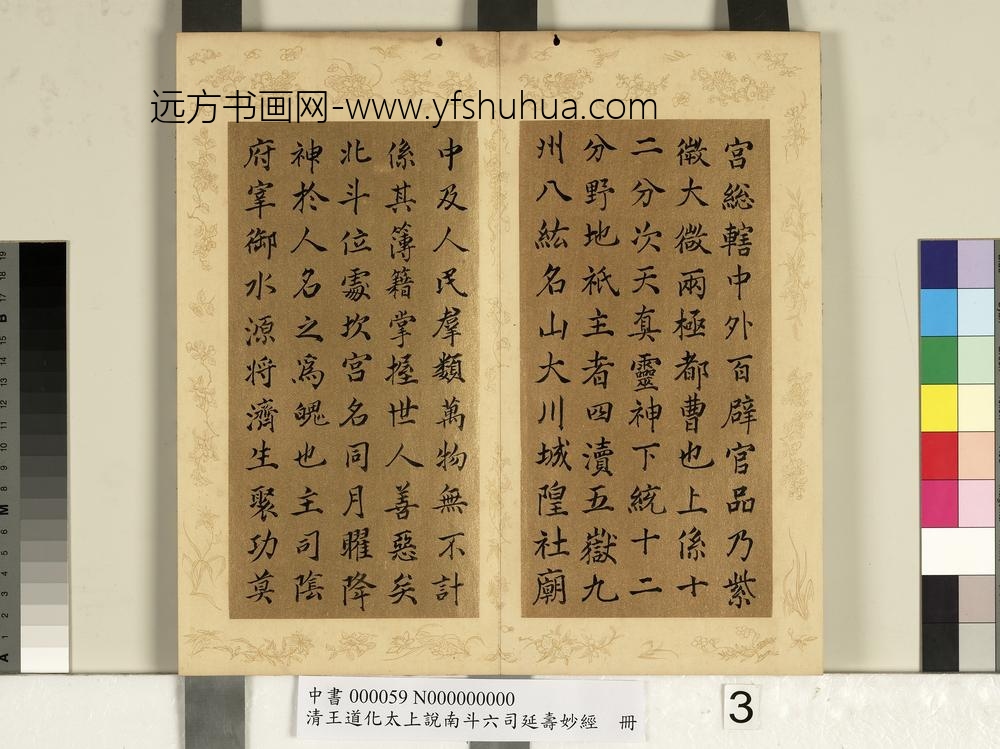 远方书画网-www.yfshuhua.com
宮総轄中外百辟官品乃紫
微大微兩極都曹也上係十
二分次天真靈神下統十二
分野地祇主者四瀆五嶽九
州八紘名山大川城隍社廟
中及人民羣類萬物無不計
係其簿籍掌握世人善惡矣
北斗位處坎宮名同月曜降
神於人名之為魄也主司陰
府宰御水源将濟生聚功莫
中書 000059 N000000000
清王道化太上說南斗六司延壽妙經 冊
3